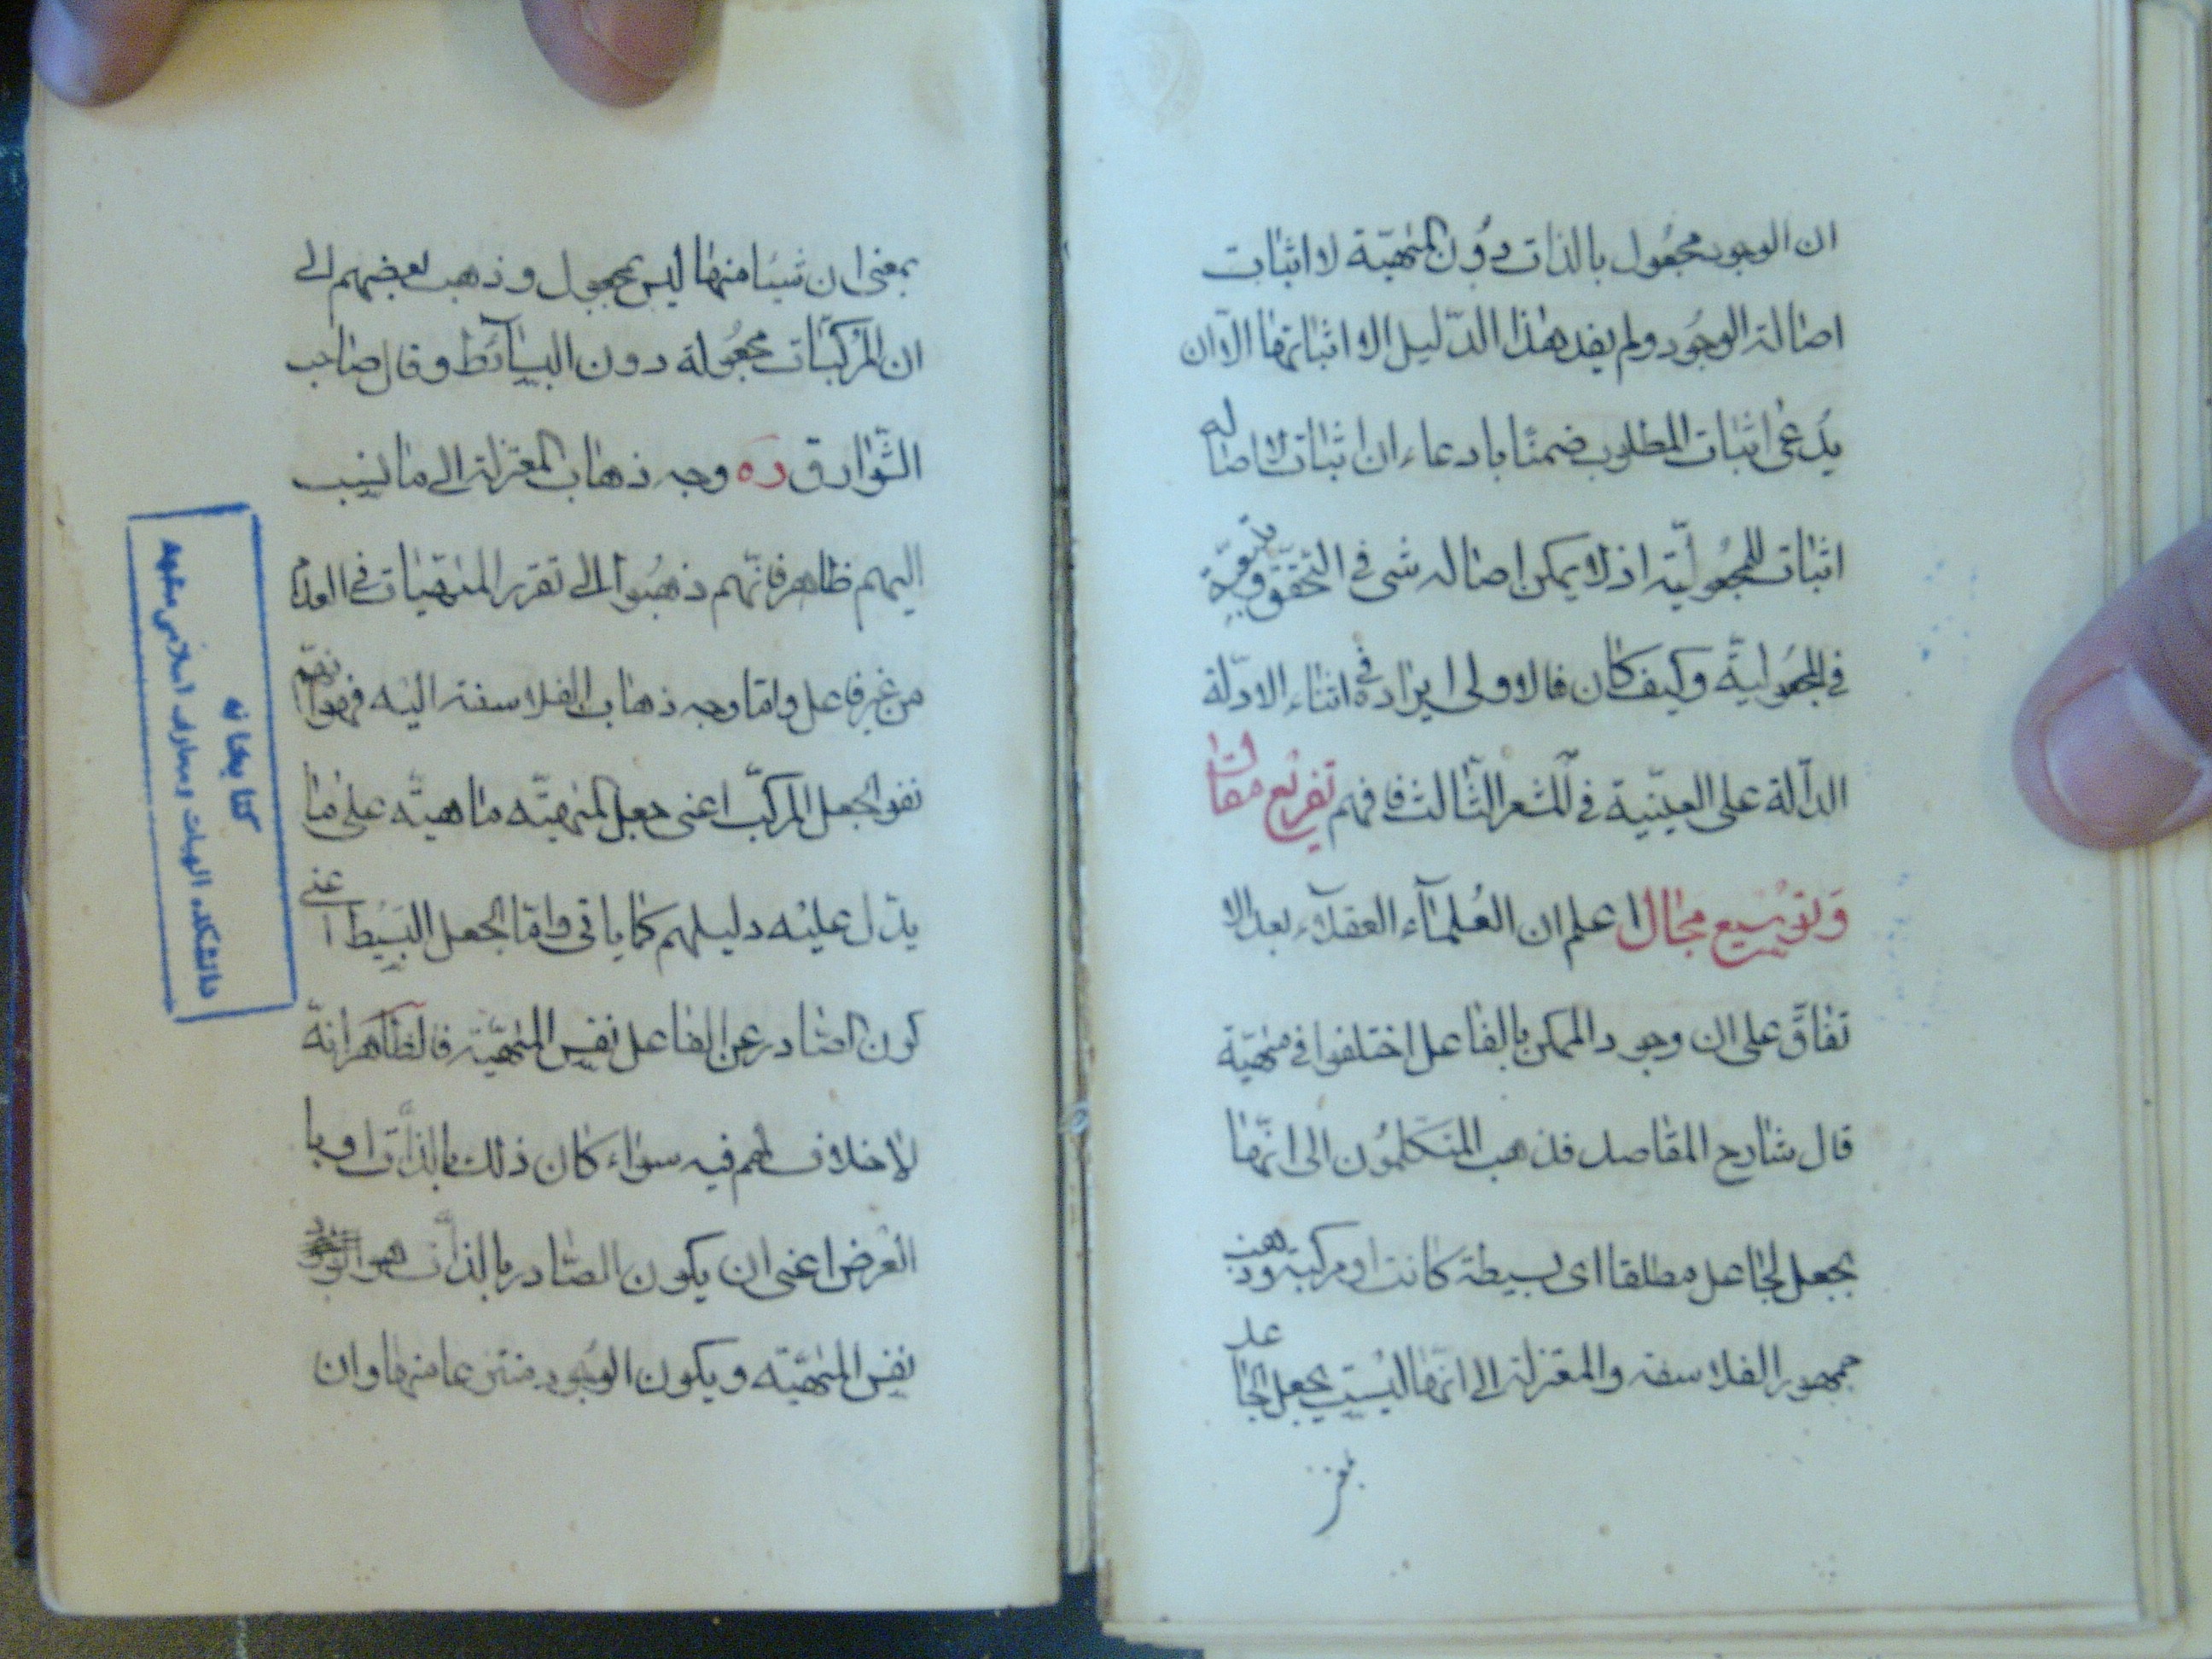 ان الوجود مجعول بالذات دون المٰهيّة لا اثبات
اصالة الوجود ولم يفد هذا الدّليل الا اثباتها الّا ان
يدعى اثبات المطلوب ضمنًا بادعاء ان اثبات الاصاله
اثبات المجعوليّة اذ لا يمكن اصاله شى فى التحقق وتبعيّة
فى المجعولية وكيف كان فالاولى ايراده فى اثناء الادلّة
الدالّة على العينيّة فى المشعر الثالث فافهم تفريع مقال
وتوسيع مجال اعلم ان العلمآء العقلآء بعد الا
تفاق على ان وجود الممكن بالفاعل اختلفوا فى مٰهيّة
قال شارح المقاصد فذهب المتكلمون الى انّها
بجعل الجاعل مطلقا اى بسيطة كانت او مركبة وذهب
جمهور الفلاسفة والمعتزلة الى انّها ليست بجعل الجاعل
بمعنى ان شيئا منها ليس بمجعول وذهب بعضهم الى
ان المركبات مجعولة دون البسآئط وقال صاحب
الشّوارق ره وجه ذهاب المعتزلة الى ما نسب
اليهم ظاهر فانّهم ذهبوا الى تقرر المٰهيّات فى العدم
من غير فاعل وامّا وجه ذهاب الفلاسفة اليه فهو انهم
نفوا الجعل المركّب اعنى جعل المٰهيّه ماهيّه على ما
يدّل عليه دليلهم كما ياتى وامّا الجعل البسيط اعنى
كون الصّادر عن الفاعل نفس المٰهيّة فالظاهر انّه
لا خلاف لهم فيه سواء كان ذلك بالذّات او با
العرض اعنى ان يكون الصّادر بالذّات هو
نفس المٰهيّه ويكون الوجود منتزعا منها وان
كتابخانه
دانشكده الهيات و معارف اسلامى مشهد